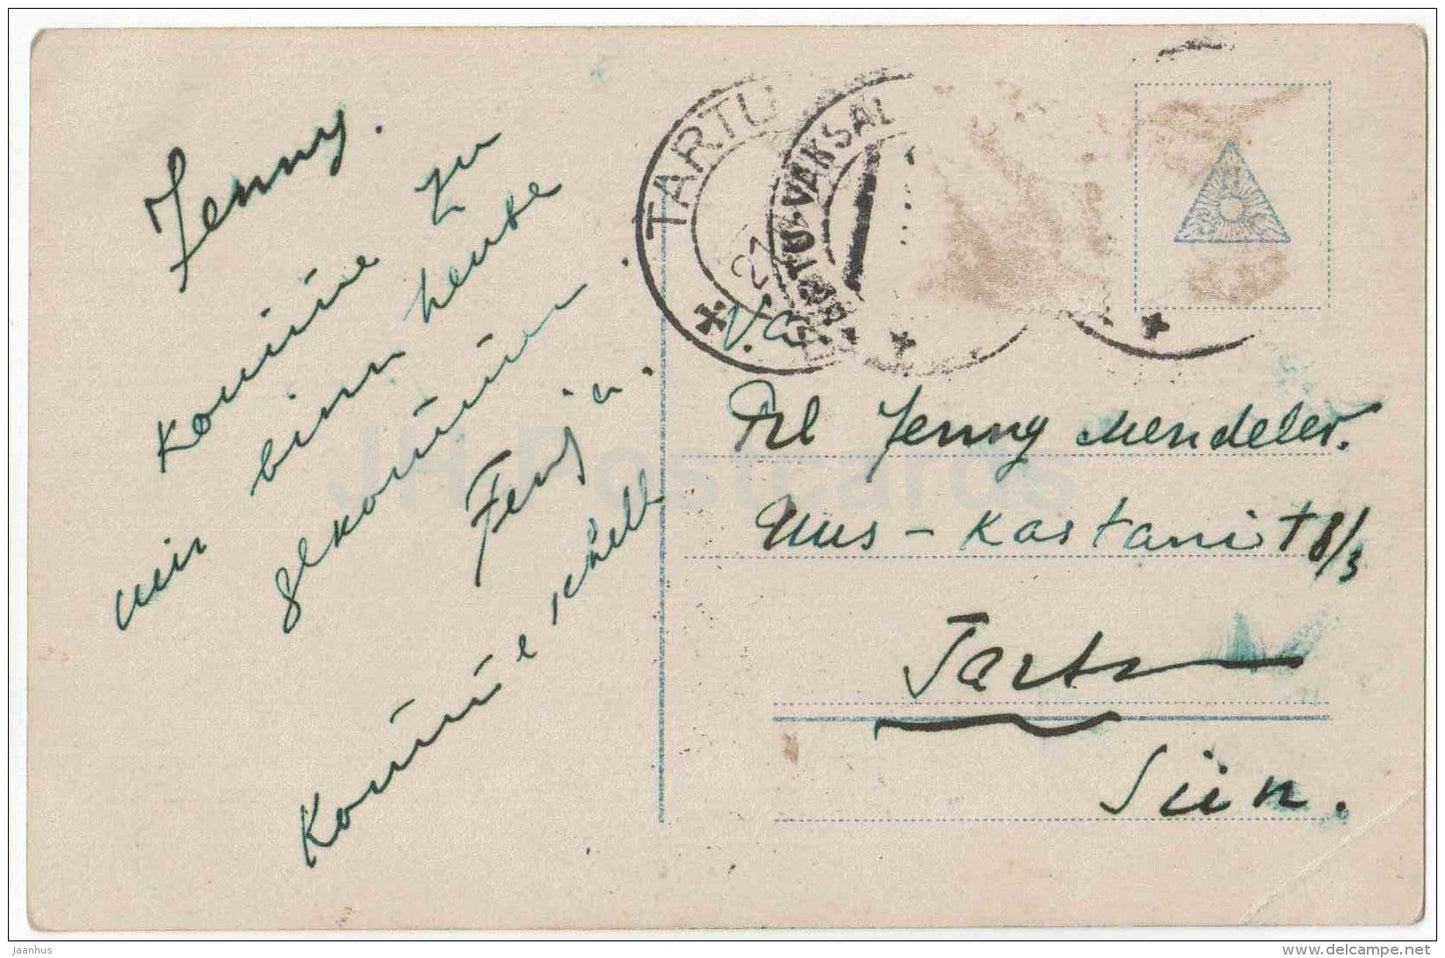 Jenny.
Komme zu
mir binn heute
gekommen.
Fenja.
Komme schell
TARTU
TARTU-VAKSAL
27
V.a.
Prl Jenny Mendelev.
Uus-Kastani t 8/3
Tartu
Siin.
N
S K
JH Postcards
jaanhus
delcampe.net